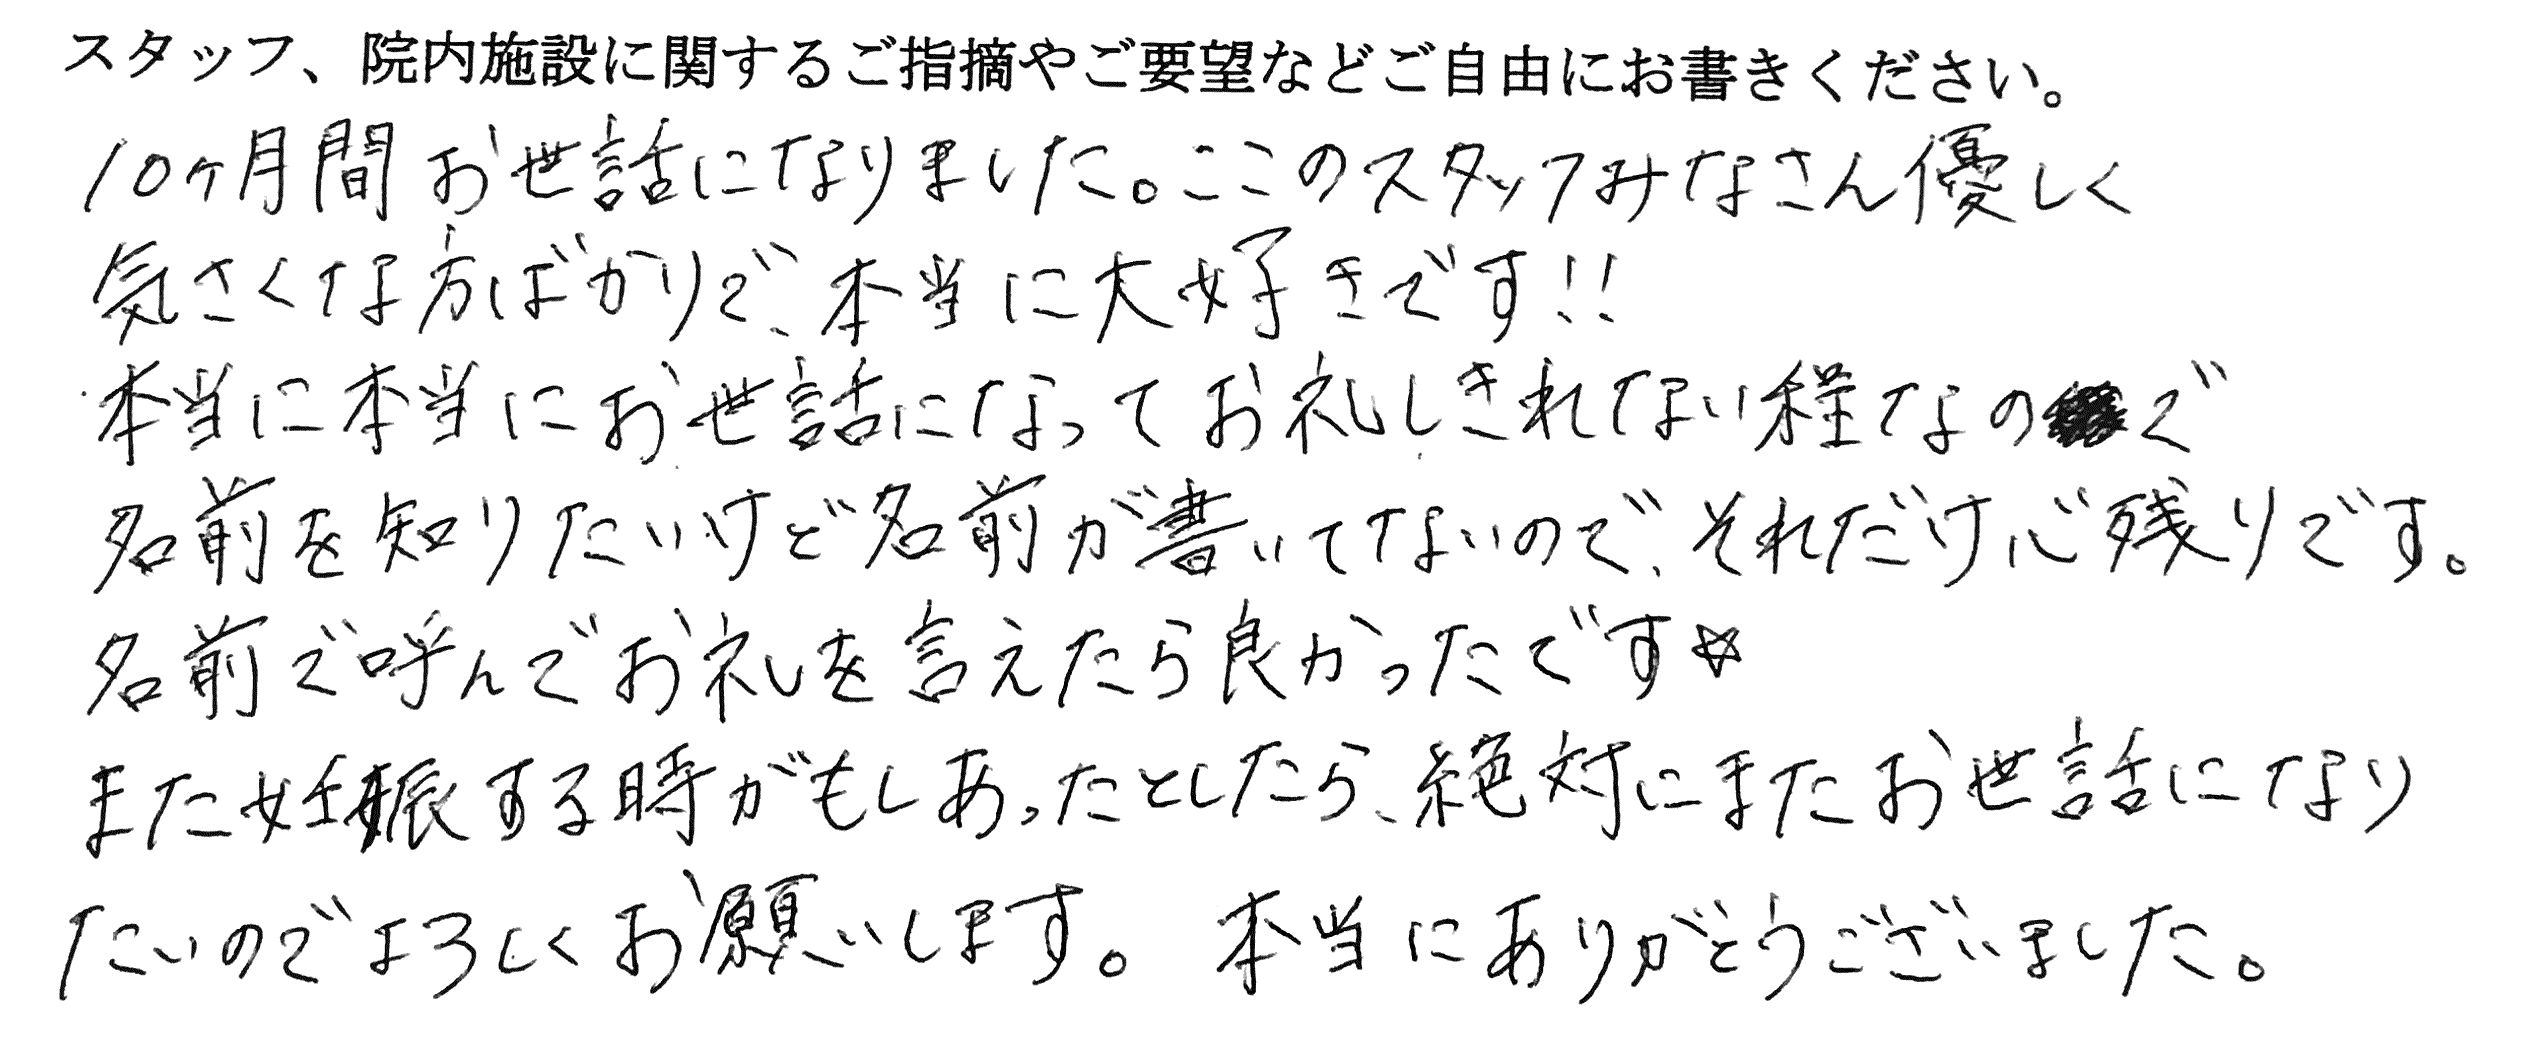 スタッフ、院内施設に関するご指摘やご要望などご自由にお書きください。
10ヶ月間お世話になりました。ここのスタッフみなさん優しく
気さくな方ばかりで、本当に大好きです!!
本当に本当にお世話になってお礼しきれない程なので
名前を知りたいけど名前が書いてないので、それだけ心残りです。
名前で呼んでお礼を言えたら良かったです☆
また妊娠する時がもしあったとしたら、絶対にまたお世話になり
たいのでよろしくお願いします。 本当にありがとうございました。